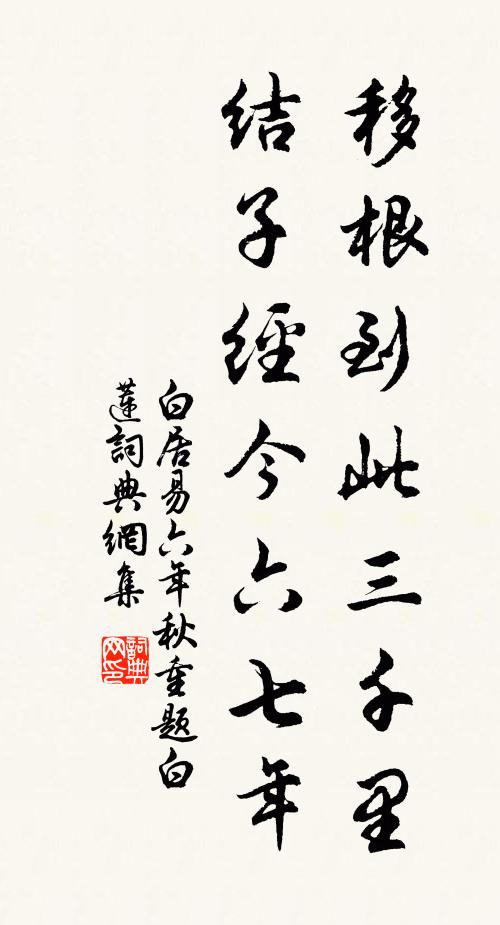 移根到此三千里
結子經今六七年
白居易六年秋重題白
蓮詞典網集
詞典
网印